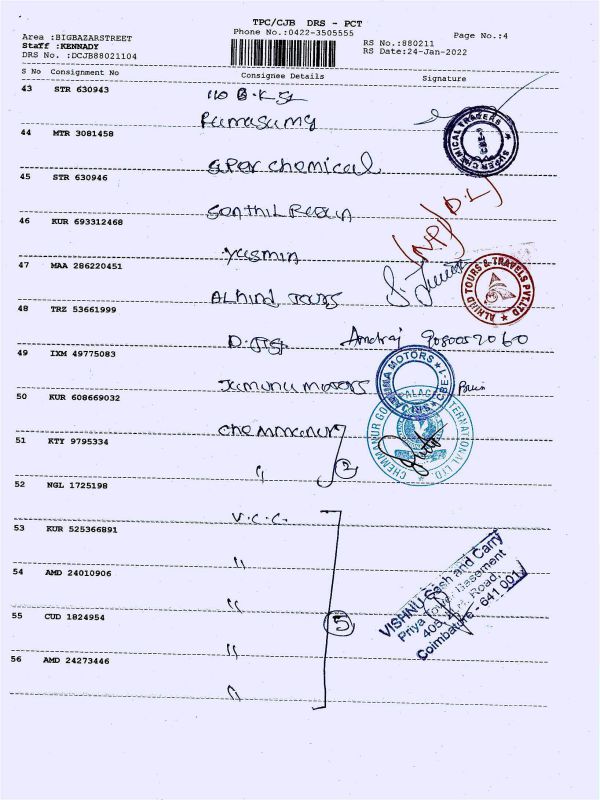 TPC/CJB DRS - PCT
Phone No.:0422-3505555
Page No.:4
Area :BIGBAZARSTREET
Staff :KENNADY
DRS No. :DCJB88021104
RS No.:880211
RS Date:24-Jan-2022
S No Consignment No Consignee Details Signature
43 STR 630943
44 MTR 3081458
Super chemical
45 STR 630946
46 KUR 693312468
Yasmin
47 MAA 286220451
Alhind Tours
48 TRZ 53661999
49 IXM 49775083
Jamuna motors
50 KUR 608669032
Chemmanur
51 KTY 9795334
"
2
52 NGL 1725198
V.C.C.
53 KUR 525366891
"
54 AMD 24010906
"
55 CUD 1824954
5
"
56 AMD 24273446
"
SUPER CHEMICAL TRADERS
ALHIND TOURS & TRAVELS PVT LTD
MOTORS CBE-1
CHEMMANUR INTERNATIONAL LTD
VISHNU Cash and Carry
Priya Basement
Road,
Coimbatore - 641 001